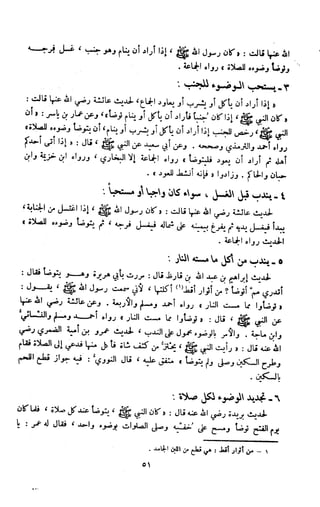 الله عنها قالت : « كان رسول الله ﷺ ، إذا أراد أن ينام وهو جنب ، غسل فرجه
وتوضأ وضوءه للصلاة » رواه الجماعة .
٣ـ يستحب الوضوء للجنب :
« إذا أراد أن يأكل أو يشرب أو يعاود الجماع » لحديث عائشة رضي الله عنها قالت :
« كان النبي ﷺ ، إذا كان جنباً فأراد أن يأكل أو ينام توضأ » وعن عمار بن ياسر : « أن
النبي ﷺ ، رخص للجنب إذا أراد أن يأكل أو يشرب أو ينام ، أن يتوضأ وضوءه للصلاة »
رواه أحمد والترمذي وصححه . وعن أبي سعيد عن النبي ﷺ ، قال : « إذا أتى أحدكم
أهله ثم أراد أن يعود فليتوضأ » رواه الجماعة إلا البخاري ، ورواه ابن خزيمة وابن
حبان والحاكم . وزادوا « فإنه أنشط للعود » .
٤ ـ يندب قبل الغسل ، سواء كان واجباً أو مستحباً :
لحديث عائشة رضي الله عنها قالت : « كان رسول الله ﷺ ، إذا اغتسل من الجنابة ،
يبدأ فيغسل يديه ثم يفرغ بيمينه على شماله فيغسل فرجه ، ثم يتوضأ وضوءه للصلاة »
الحديث رواه الجماعة .
٥ ـ يندب من أكل ما مسته النار :
لحديث إبراهيم بن عبد الله بن قارظ قال : مررت بأبي هريرة وهو يتوضأ فقال :
أتدري مم أتوضأ ؟ من أثوار أقط (١) أكلتها ، لأني سمعت رسول الله ﷺ ، يقول :
« توضأوا مما مست النار » رواه أحمد ومسلم والأربعة . وعن عائشة رضي الله عنها
عن النبي ﷺ ، قال : « توضأوا مما مست النار » رواه أحمد ومسلم والنسائي
وابن ماجة . والأمر بالوضوء محمول على الندب ، لحديث عمرو بن أمية الضمري رضي
الله عنه قال : « رأيت النبي ﷺ ، يحتز من كتف شاة فأكل منها فدعي إلى الصلاة فقام
وطرح السكين وصلى ولم يتوضأ » متفق عليه ، قال النووي : فيه جواز قطع اللحم
بالسكين .
٦ ـ تجديد الوضوء لكل صلاة :
لحديث بريدة رضي الله عنه قال : « كان النبي ﷺ ، يتوضأ عند كل صلاة ، فلما كان
يوم الفتح توضأ ومسح على خفيه وصلى الصلوات بوضوء واحد ، فقال له عمر : يا
١ ـ من أثوار أقط : هي قطع من اللبن الجامد .
٥١